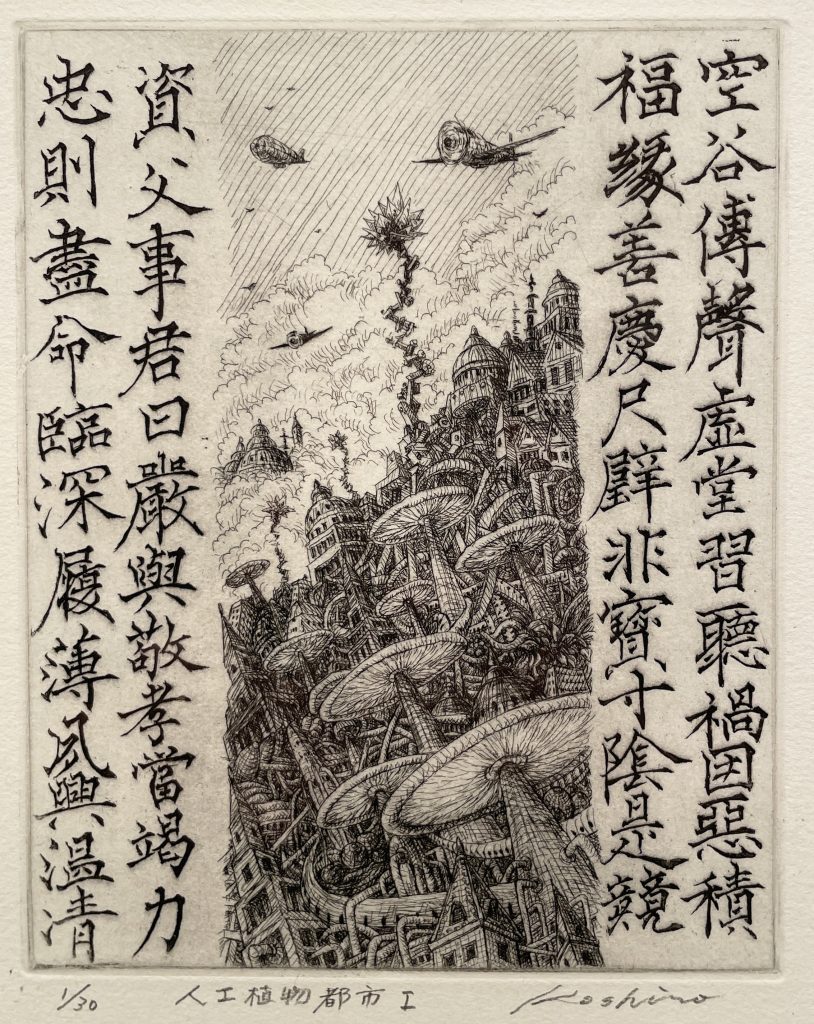 空谷傳聲虛堂習聽禍因惡積
福緣善慶尺璧非寶寸陰是競
資父事君曰嚴與敬孝當竭力
忠則盡命臨深履薄夙興溫清
1/30 人工植物都市 I Koshino